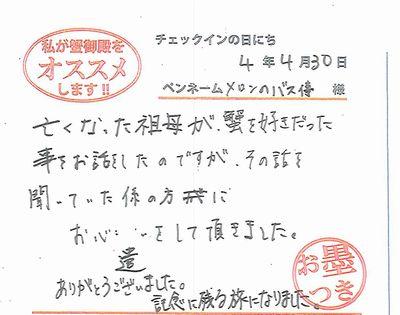 私が蟹御殿を
オススメ
します!!
チェックインの日にち
4年4月30日
ペンネーム メロンのバス停 様
亡くなった祖母が、蟹を好きだった
事をお話をしたのですが、その話を
聞いていた係の方に
お心遣いをして頂きました。
ありがとうございました。
記念に残る旅になりました。
お墨つき